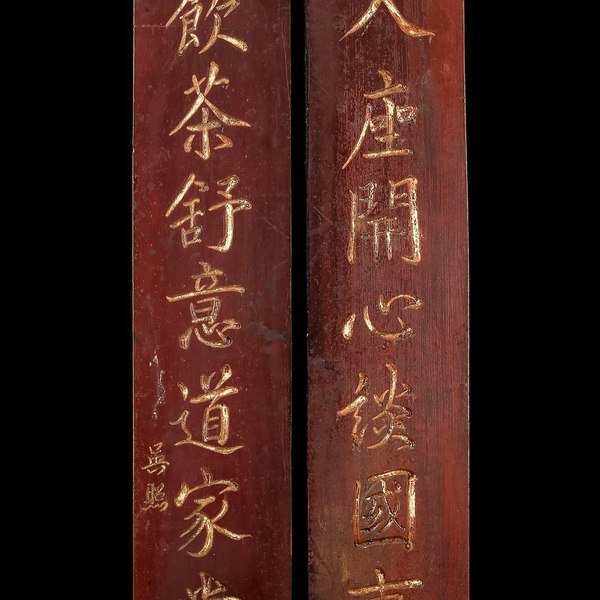 入座開心談國
飲茶舒意道家
吳照